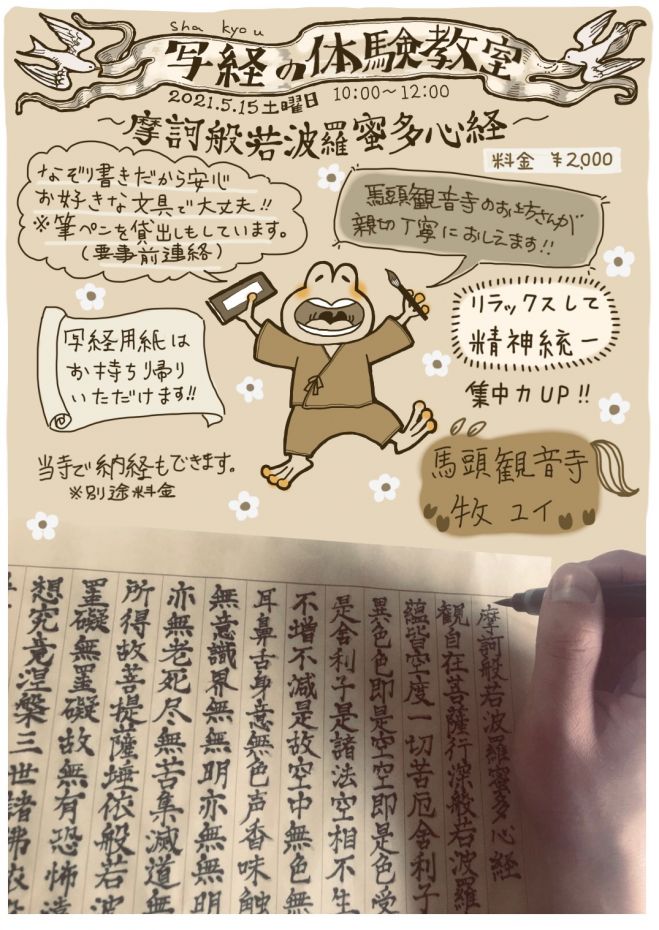 sha kyou
写経の体験教室
2021.5.15土曜日 10:00〜12:00
〜摩訶般若波羅蜜多心経〜
料金 ¥2,000
なぞり書きだから安心
お好きな文具で大丈夫!!
※筆ペンを貸出しもしています。
(要事前連絡)
馬頭観音寺のお坊さんが
親切丁寧におしえます!!
リラックスして
精神統一
集中力UP!!
写経用紙は
お持ち帰り
いただけます!!
当寺で納経もできます。
※別途料金
馬頭観音寺
牧 ユイ
摩訶般若波羅蜜多心経
観自在菩薩行深般若波羅
蘊皆空度一切苦厄舎利子
異色色即是空空即是色受
是舎利子是諸法空相不生
不増不減是故空中無色無
耳鼻舌身意無色声香味触
無意識界無無明亦無無明
亦無老死尽無苦集滅道無
所得故菩提薩埵依般若波
罣礙無罣礙故無有恐怖遠
想究竟涅槃三世諸佛依